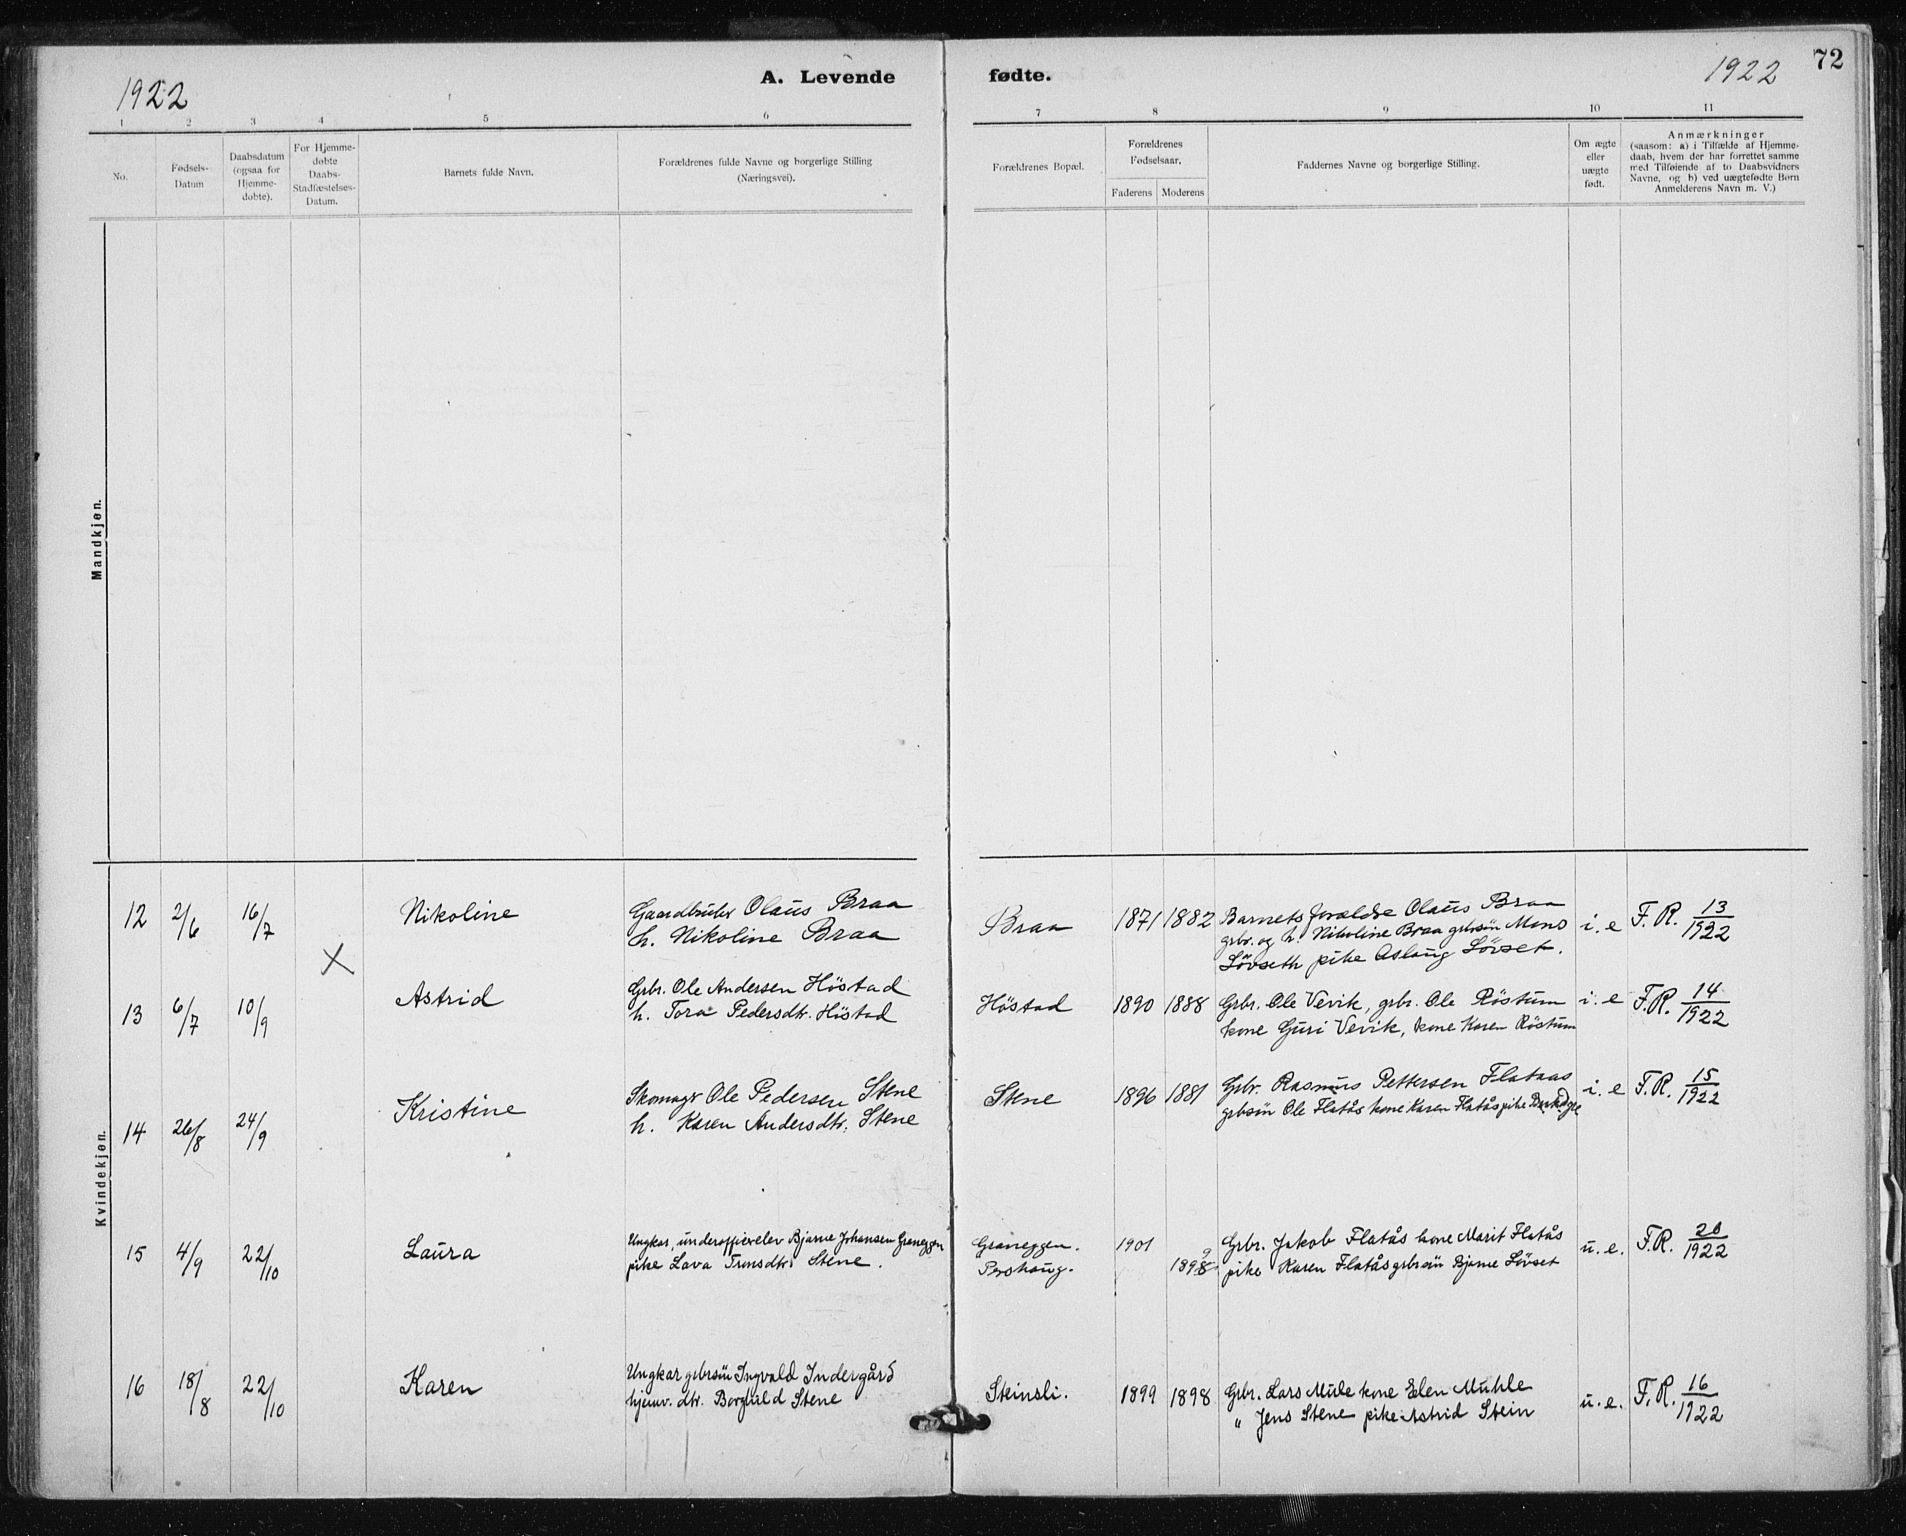 1922
A. Levende fødte.
1922
72
1 2 3 4 5 6 7 8 9 10 11
No.
Fødsels-
Datum
Daabsdatum
(ogsaa for
Hjemme-
døbte).
For Hjemme-
døbte
Daabs-
Stadfæstelses-
Datum.
Barnets fulde Navn.
Forældrenes fulde Navne og borgerlige Stilling
(Næringsvei).
Forældrenes Bopæl.
Forældrenes
Fødselsaar.
Faderens Moderens
Faddernes Navne og borgerlige Stilling.
Om ægte
eller
uægte
født.
Anmærkninger
(saasom: a) i Tilfælde af Hjemme-
daab, hvem der har forrettet samme
med Tilføiende af to Daabsvidners
Navne, og b) ved uægtefødte Børn
Anmelderens Navn m. V.)
Mandkjøn.
Kvindekjøn.
12 2/6 16/7 Nikoline
Gaardbruker Olaus Braa
h. Nikoline Braa
Braa 1871 1882
Barnets forældre Olaus Braa
grbr. og h. Nikoline Braa grbsön Mons
Lövseth pike Aslaug Lövset.
i. e F. R. 13/1922
X
13 6/7 10/9 Astrid
Grbr. Ole Andersen Höstad
h. Tora Pedersdtr. Höstad
Höstad 1890 1888
Grbr. Ole Vevik, grbr. Ole Röstum
kone Guri Vevik, kone Karen Röstum
i. e F. R. 14/1922
14 26/8 24/9 Kristine
Skomagr Ole Pedersen Stene
h. Karen Andersdtr. Stene
Stene 1896 1881
Grbr. Rasmus Pettersen Flataas
grbsön Ole Flatås kone Karen Flatås pike
i. e F. R. 15/1922
15 4/9 22/10 Laura
Ungkar, underofficerelev Bjarne Johansen Graneggen
pike Lava Tronsdtr. Stene.
Graneggen.
Pershaug.
1901 1898 9
Grbr. Jakob Flatås kone Marit Flatås
pike Karen Flatås grbrsön Bjarne Lövset
u. e. F. R. 20/1922
16 18/8 22/10 Karen
Ungkar grbrsön Ingvald Indergård
hjemv. dtr. Borghild Stene
Steinsli. 1899 1898
Grbr. Lars Mule kone Elen Muhle
" Jens Stene pike Astrid Stein
u. e. F. R. 16/1922